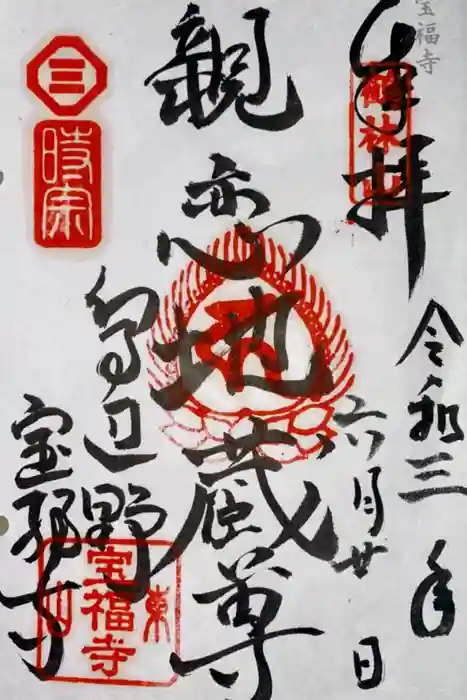 宝福寺
奉拝
鶴林山
令和三年
六月廿日
親恋地蔵尊
鳥辺野
宝福寺
三
時宗
東山
宝福寺